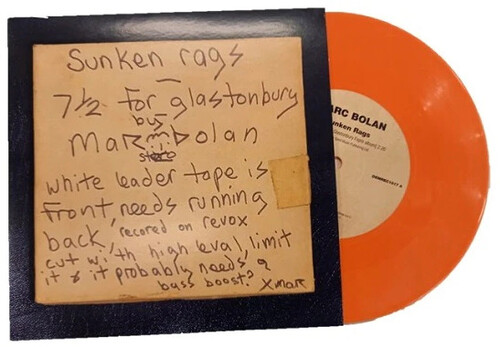 Sunken rags
7½ for glastonbury
by
Marc Bolan
stereo
white leader tape is
front, needs running
back, recored on revox
cut with high leval, limit
it & it probably needs a
bass boost? X marc
ARC BOLAN
unken Rags